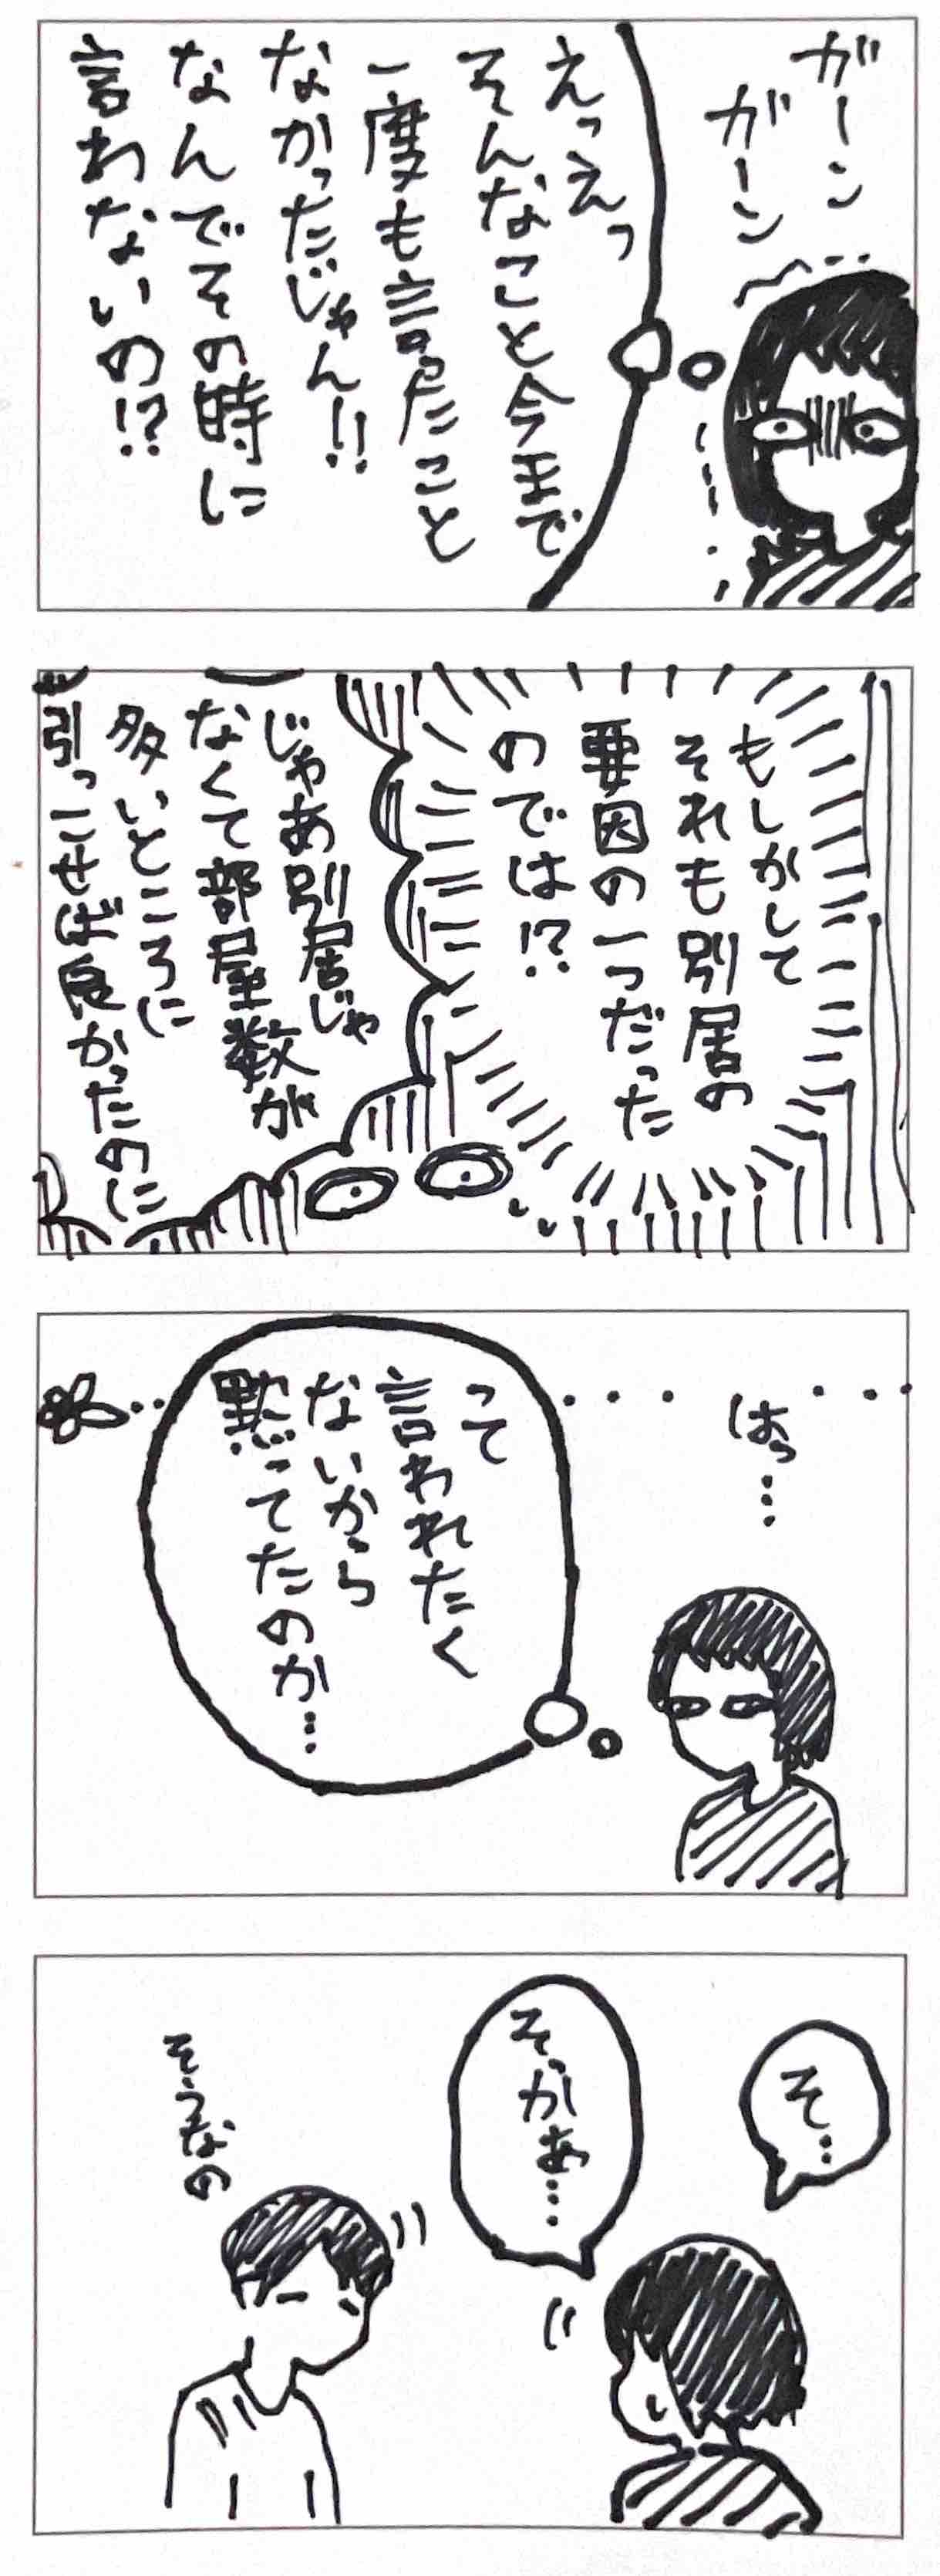 ガーン
ガーン
えっえっ
そんなこと今まで
一度も言ったこと
なかったじゃん!!
なんでその時に
言わないの!?
もしかして
それも別居の
要因の一つだった
のでは!?
じゃあ別居じゃ
なくて部屋数が
多いところに
引っこせば良かったのに
はっ…
って
言われたく
ないから
黙ってたのか…
そ…
そっかぁ…
そうなの